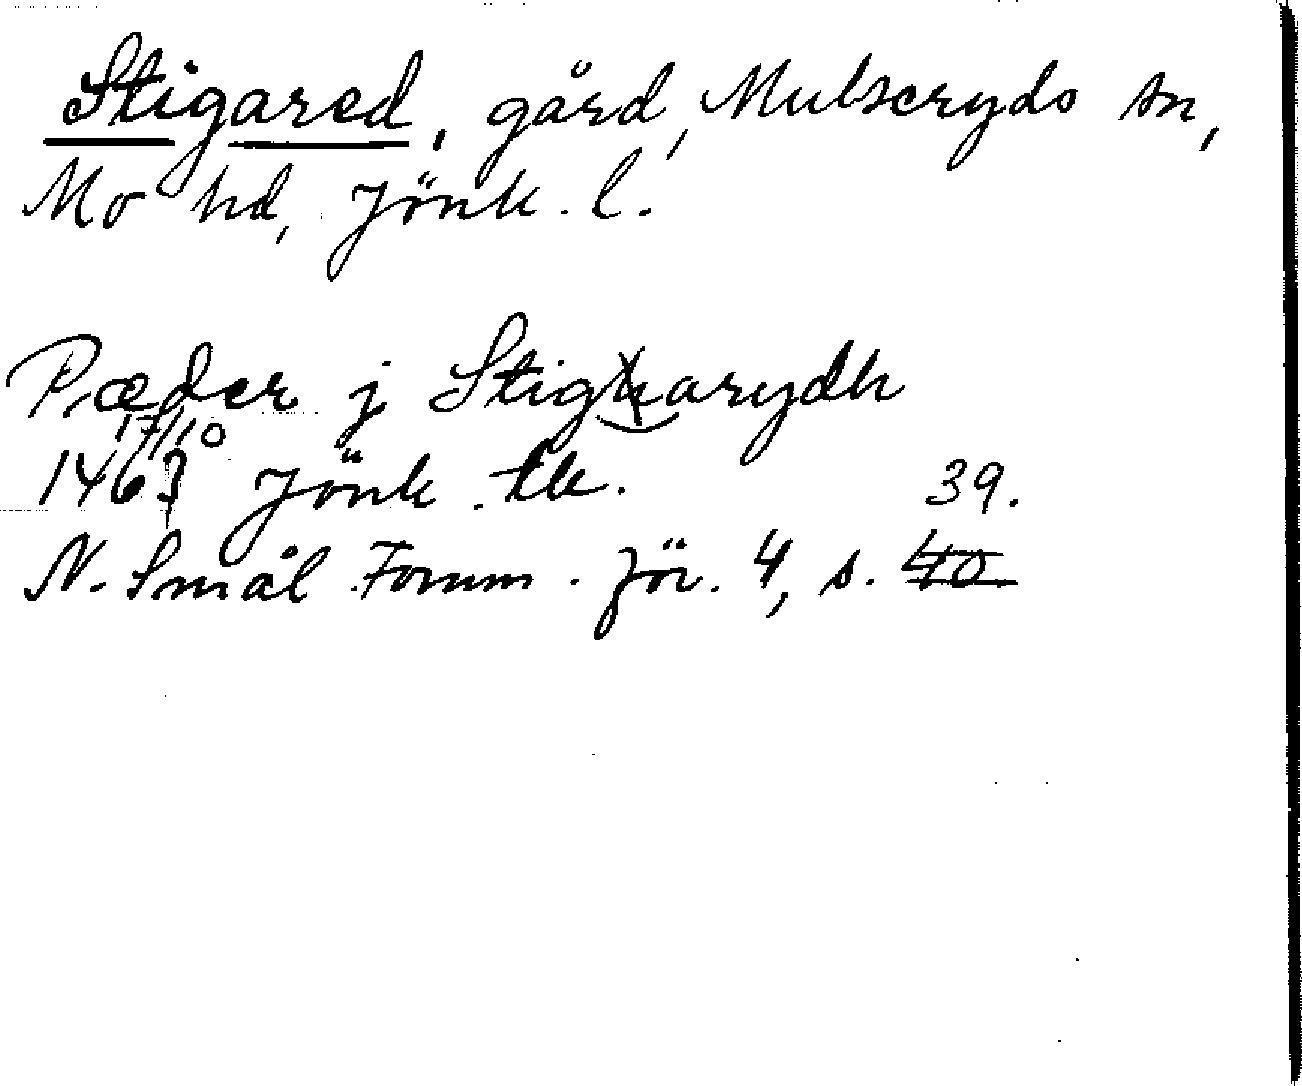 Stigared, gård, Mulseryds sn,
Mo hd, Jönk. l.
Pæder j Stigarydh
17/10
1463 Jönk. tb.
39.
N. Smål. Fornm. för. 4, s. 40